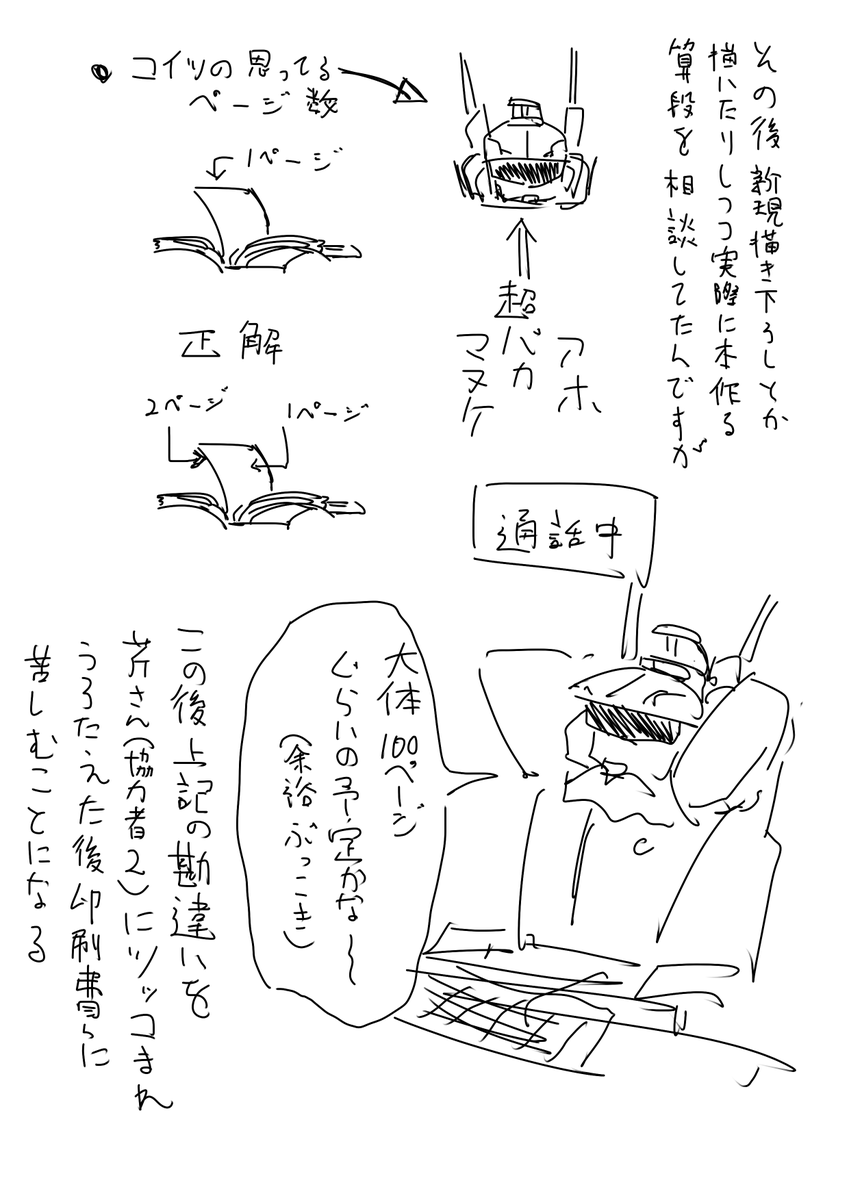 その後新規描き下ろしとか
描いたりしつつ実際に本作る
算段を相談してたんですが
コイツの思ってる
ページ数
1ページ
アホ
超バカ
マヌケ
正解
2ページ
1ページ
通話中
大体100ページ
ぐらいの予定かな〜
(余裕ぶっこき)
この後上記の勘違いを
芥さん(協力者2)にツッコまれ
うろたえた後印刷費らに
苦しむことになる